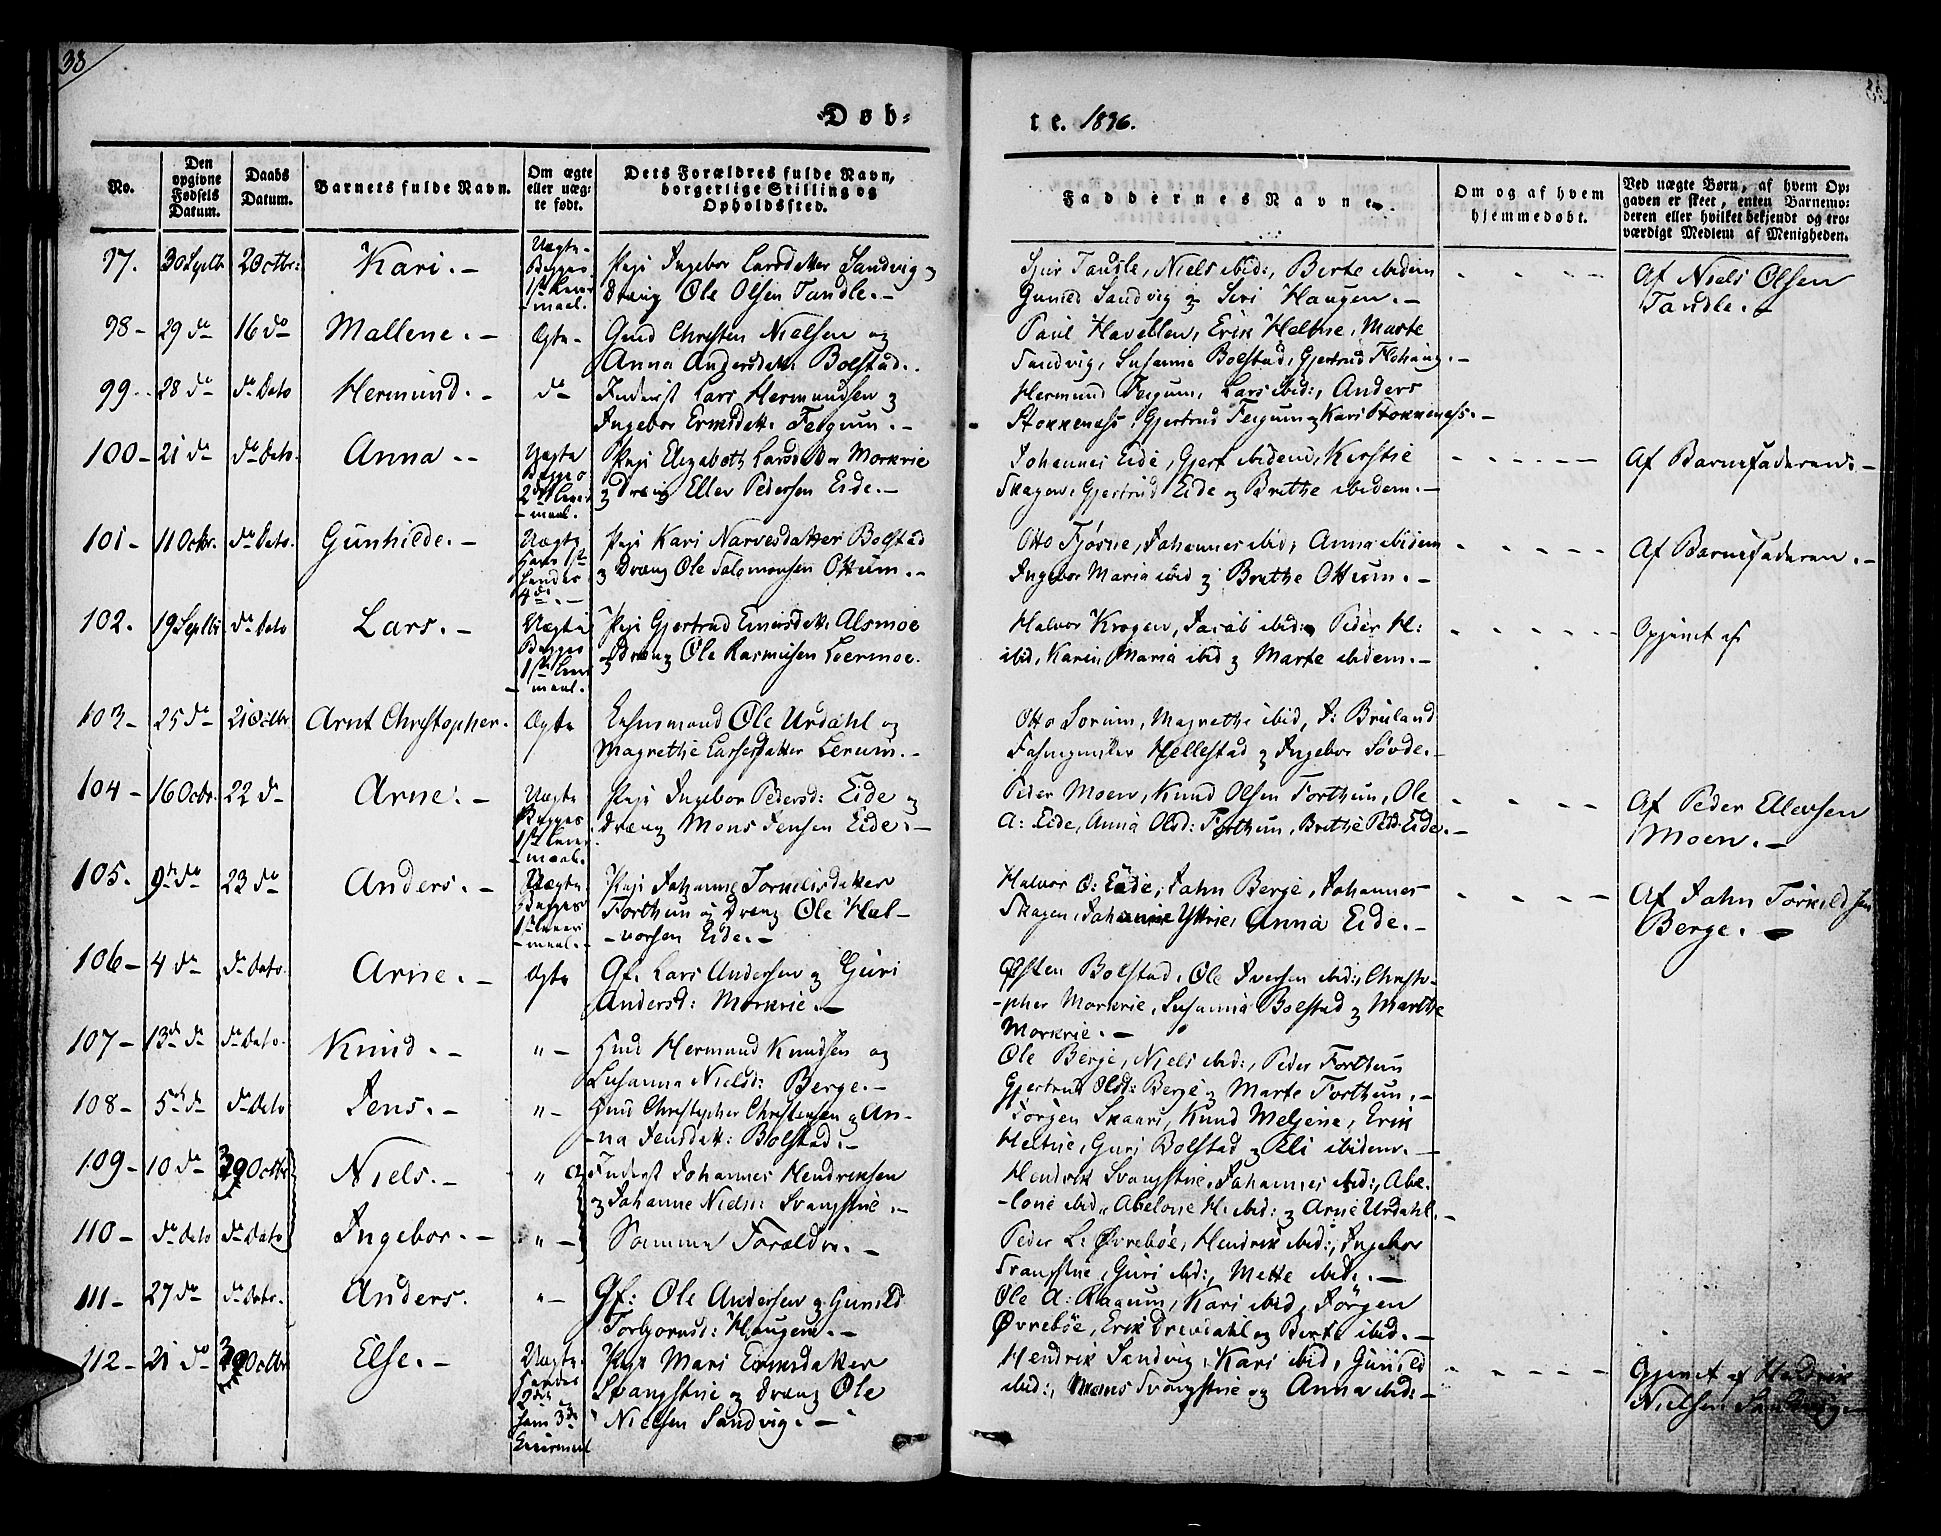 38
Døb-
te. 1836.
No.
Den opgivne Fødsels Datum.
Daabs Datum.
Barnets fulde Navn.
Om ægte eller uægte født.
Dets Forældres fulde Navn, borgerlige Stilling og Opholdssted.
Faddernes Navne.
Om og af hvem hjemmedøbt.
Ved uægte Børn, af hvem Opgaven er skeet, enten Barnemoderen eller hvilket bekjendt og troværdigt Medlem af Menigheden.
97. 30 Septb 2 Octbr: Kari. - Uægte Begges 1ste Leiermaal. Pige Ingebor Larsdatter Sandvig og
Dreng Ole Olsen Tandle. -
Tandle, Niels ibid:, Berte ibidem
Gunild Sandvig og Siri Haugen. -
Af Niels Olsen
Tandle. -
98 - 29 do 16 do Mallene. - Ægte - Gmd Christen Nielsen og
Anna Andersdatt: Bolstad.
Paul Erik Heltne, Marte
Sandvig, Susanna Bolstad, Gjertrud
99. 28 do do Dato Hermund. - do Inderst Lars Hermundsen og
Ingebor Eriksdatt: Fergum. -
Hermund Fergum, Lars ibid:, Anders
Stokkenæss, Gjertrud Fergum og Kari Stokkenæss. -
100 - 21 do do Dato. Anna - Uægte Begges 2det Leiermaal. Pige Elizabeth Larsdatter Morkrie
og Dreng Ellev Pedersen Eide. -
Johannes Eide, Gjert ibidem, Kirstie
Skagen, Gjertrud Eide og Brithe ibidem. -
Af Barnefaderen. -
101 - 11 Octbr. do Dato. Gunhilde. - Uægte 1ste 4de. - Pige Kari Narvesdatter Bolstad
og Dreng Ole Salomonsen Ottum. -
Otto Fjøsne, Johannes ibid, Anna ibidem
Ingebor Maria ibid og Brithe Ottum. -
Af Barnefaderen. -
102. 19 Septbr do Dato Lars. - Uægte Begges 1ste Leiermaal. Pige Gjertrud Alsmoe
og Dreng Ole Rasmusen Leermoe.
Halvor Krogen, Jacob ibid: Peder H:
ibid, Karin Maria ibid og Marte ibidem. -
af
103 - 25 do 21 Octbr Arnt Christopher. Ægte Ole Urdahl og
Magrethe Lassesdatter Lerum. -
Otto Lorum, Magrethe ibid, J: Bruland
Hellestad og Ingebor Søvde. -
104 - 16 Octbr. 22 do - Arne. - Uægte Begges 1ste Leiermaal. Pige Ingebor Pedersd: Eide og
Dreng Mons Jensen Eide. -
Peder Moen, Knud Olsen Forthun, Ole
A: Eide, Anna Olsd: Forthun, Brithe Ped: Eide. -
Af Peder Ellevsen
Moen. -
105. 9de do 23 do Anders. - Uægte Begges 1ste Leiermaal. - Pige Johanne Torkelsdatter
Forthun og Dreng Ole Hal-
-vorsen Eide. -
Halvor O: Eide, John Berge, Johannes
Skagen, Johanne Yttrie, Anna Eide. -
Af John Torkildsen
Berge. -
106 - 4 do do Dato. Arne. - Ægte Gf. Lars Andersen og Guri
Andersd: Morkrie. -
Østen Bolstad, Ole Iversen ibid:, Christo-
-pher Morkrie, Susanna Bolstad og Marthe
Morkrie. -
107 - 13de do do Dato. Knud. - " - Gmd Hermund Knudsen og
Susanna Nielsd: Berge. -
Ole Berge, Niels ibid:, Peder Forthun
Gjertrud Olsd: Berge og Marte Forthun. -
108 - 5te do do Dato Jens. - " - Gmd Christopher Christensen og An-
-na Jensdatt: Bolstad. -
Jørgen Skaari, Knud Erik
Heltne, Guri Bolstad og Eli ibidem. -
109 - 10 do 30 Octbr Niels. - " Inderst Johannes Hendriksen
og Johanne Nielsd: Svangstue. -
Hendrik Svangstue, Johannes ibid:, Abe-
-lone ibid, Abelone H: ibid: og Arne Urdahl. -
110 - do Dato do Dato Ingebor. - " - Samme Forældre. -
Peder L: Øvrebøe, Hendrik ibid:, Ingebor
Svangstue, Guri ibid:, Mette ibid:. -
111 - 27 do do Dato. Anders. " - Gf: Ole Andersen og Gunild
Torbjørnsd: Haugen. -
Ole A: Raaum, Kari ibid, Jørgen
Øvrebøe, Erik Drevdahl og Berte ibid. -
112 - 21 do 30 Octbr Else. - Uægte 2det hans 3de Leiermaal Pige Mari Eriksdatter
Svangstue og Dreng Ole
Nielsen Sandvig. -
Hendrik Sandvig, Kari ibid, Gunild
ibid:, Mons Svangstue og Anna ibid: -
af
Nielsen Sandvig. -